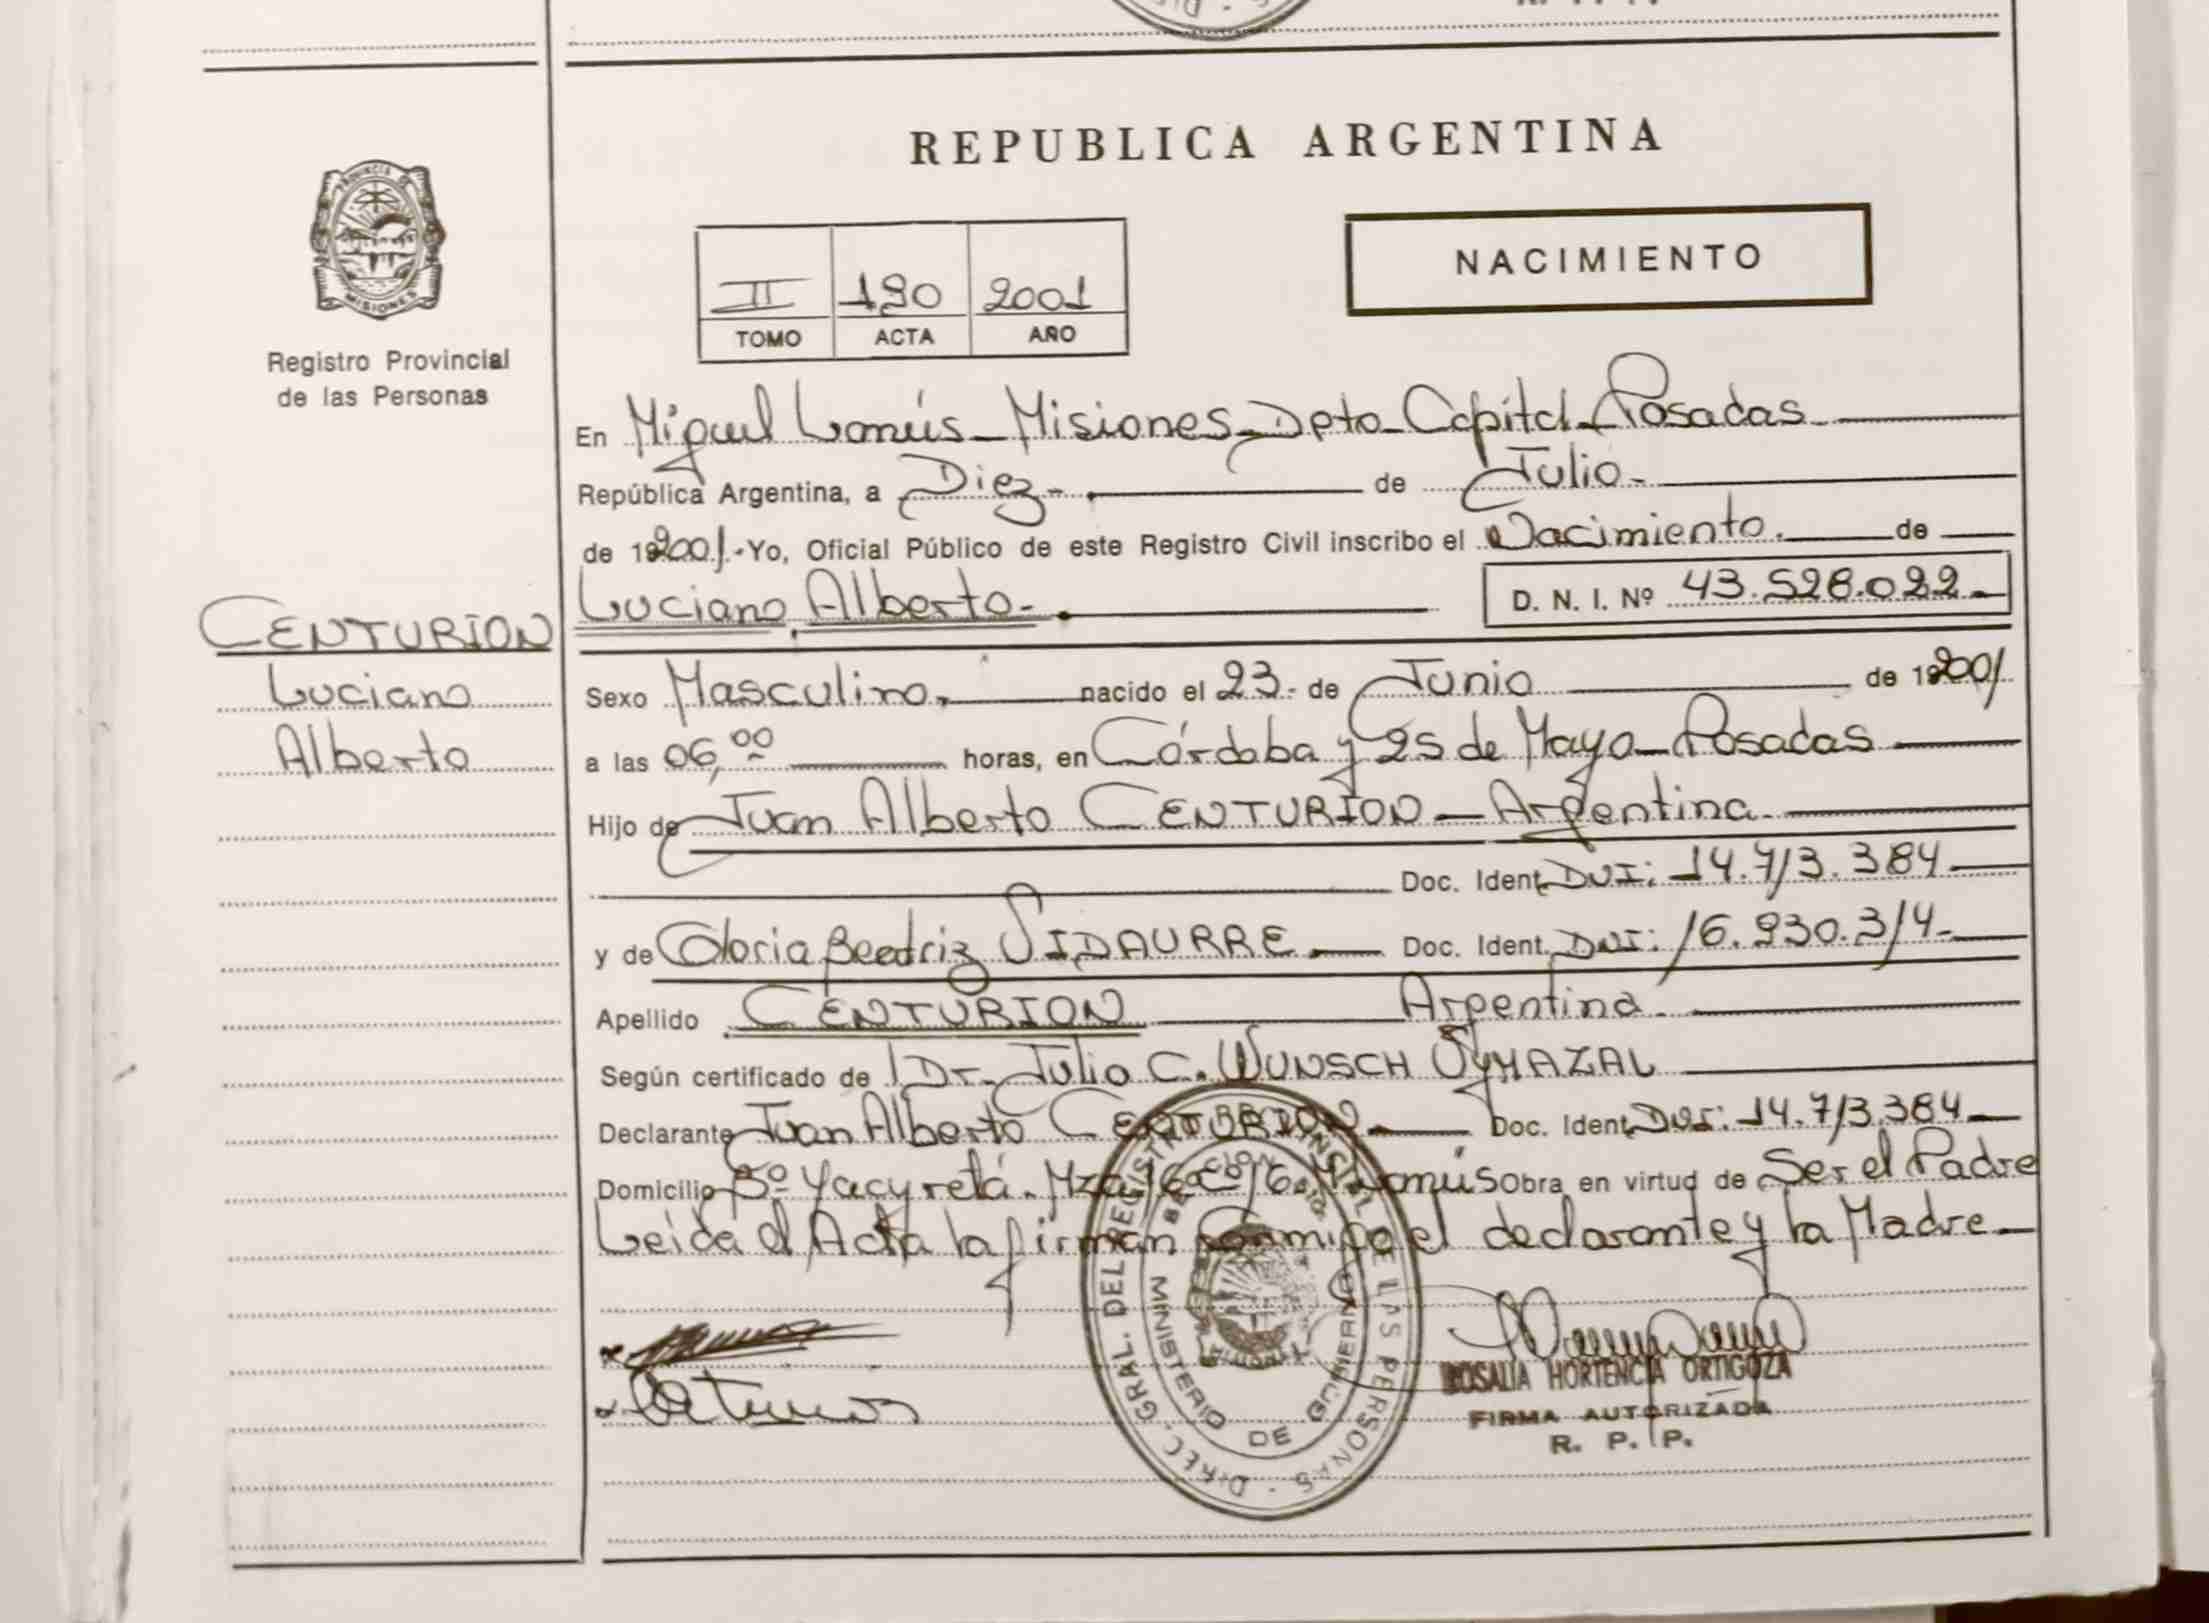 REPUBLICA ARGENTINA
PROVINCIA DE
MISIONES
Registro Provincial
de las Personas
NACIMIENTO
II 190 2001
TOMO ACTA AÑO
En Miguel Lanús - Misiones - Dpto - Capital - Posadas
República Argentina, a Diez - de Julio -
de 192001 - Yo, Oficial Público de este Registro Civil inscribo el Nacimiento. de
Luciano Alberto - D. N. I. Nº 43.528.022 -
CENTURION
Luciano
Alberto
Sexo Masculino. nacido el 23 - de Junio de 192001
a las 06,00 horas, en Córdoba y 25 de Mayo - Posadas
Hijo de Juan Alberto CENTURION - Argentina -
Doc. Ident. DNI: 14.713.384
y de Gloria Beatriz SIDAURRE. Doc. Ident. DNI: 16.930.314 -
Apellido CENTURION Argentina -
Según certificado de Dr. Julio C. WUNSCH
Declarante Juan Alberto CENTURION. Doc. Ident. DNI: 14.713.384
Domicilio Bº Yacyretá. Mza Lanús Obra en virtud de Ser el Padre
Leída el Acta la firman conmigo el declarante y la Madre
DIREC. GRAL. DEL REGISTRO PROVINCIAL DE LAS PERSONAS
MINISTERIO DE GOBIERNO
ROSALIA HORTENCIA ORTIGOZA
FIRMA AUTORIZADA
R. P. P.